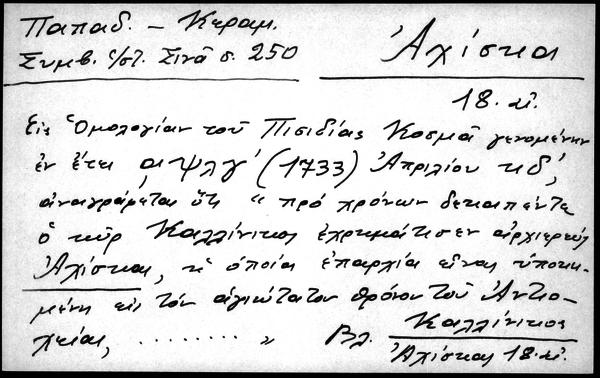 Παπαδ. – Κεραμ.
Συμβ. εἰς ἱστ. Σινᾶ σ. 250
Ἀχίσκα
18. αἰ.
Εἰς Ὁμολογίαν τοῦ Πισιδίας Κοσμᾶ γενομένην
ἐν ἔτει ͵αψλγ΄ (1733) Ἀπριλίου κδ΄,
ἀναγράφεται ὅτι " πρὸ χρόνων δεκαπέντε
ὁ κὺρ Καλλίνικος ἐχρημάτισεν ἀρχιερεὺς
Ἀχίσκας, ἡ ὁποία ἐπαρχία εἶναι ὑποκει-
μένη εἰς τὸν ἁγιώτατον θρόνον τοῦ Ἀντιο-
χείας, ........ " Βλ. Καλλίνικος
Ἀχίσκας 18. αἰ.